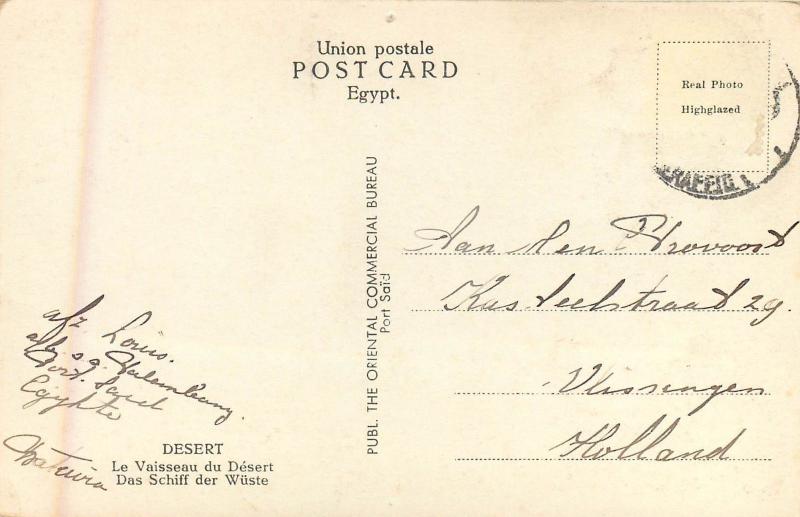 Union postale
POST CARD
Egypt.
Real Photo
Highglazed
PUBL. THE ORIENTAL COMMERCIAL BUREAU
Port Saïd
Aan den Provoost
Kasteelstraat 29.
Vlissingen
Holland
afz Louis.
a/b s.s. Palembang.
Port. Said
Egypte
DESERT
Le Vaisseau du Désert
Das Schiff der Wüste